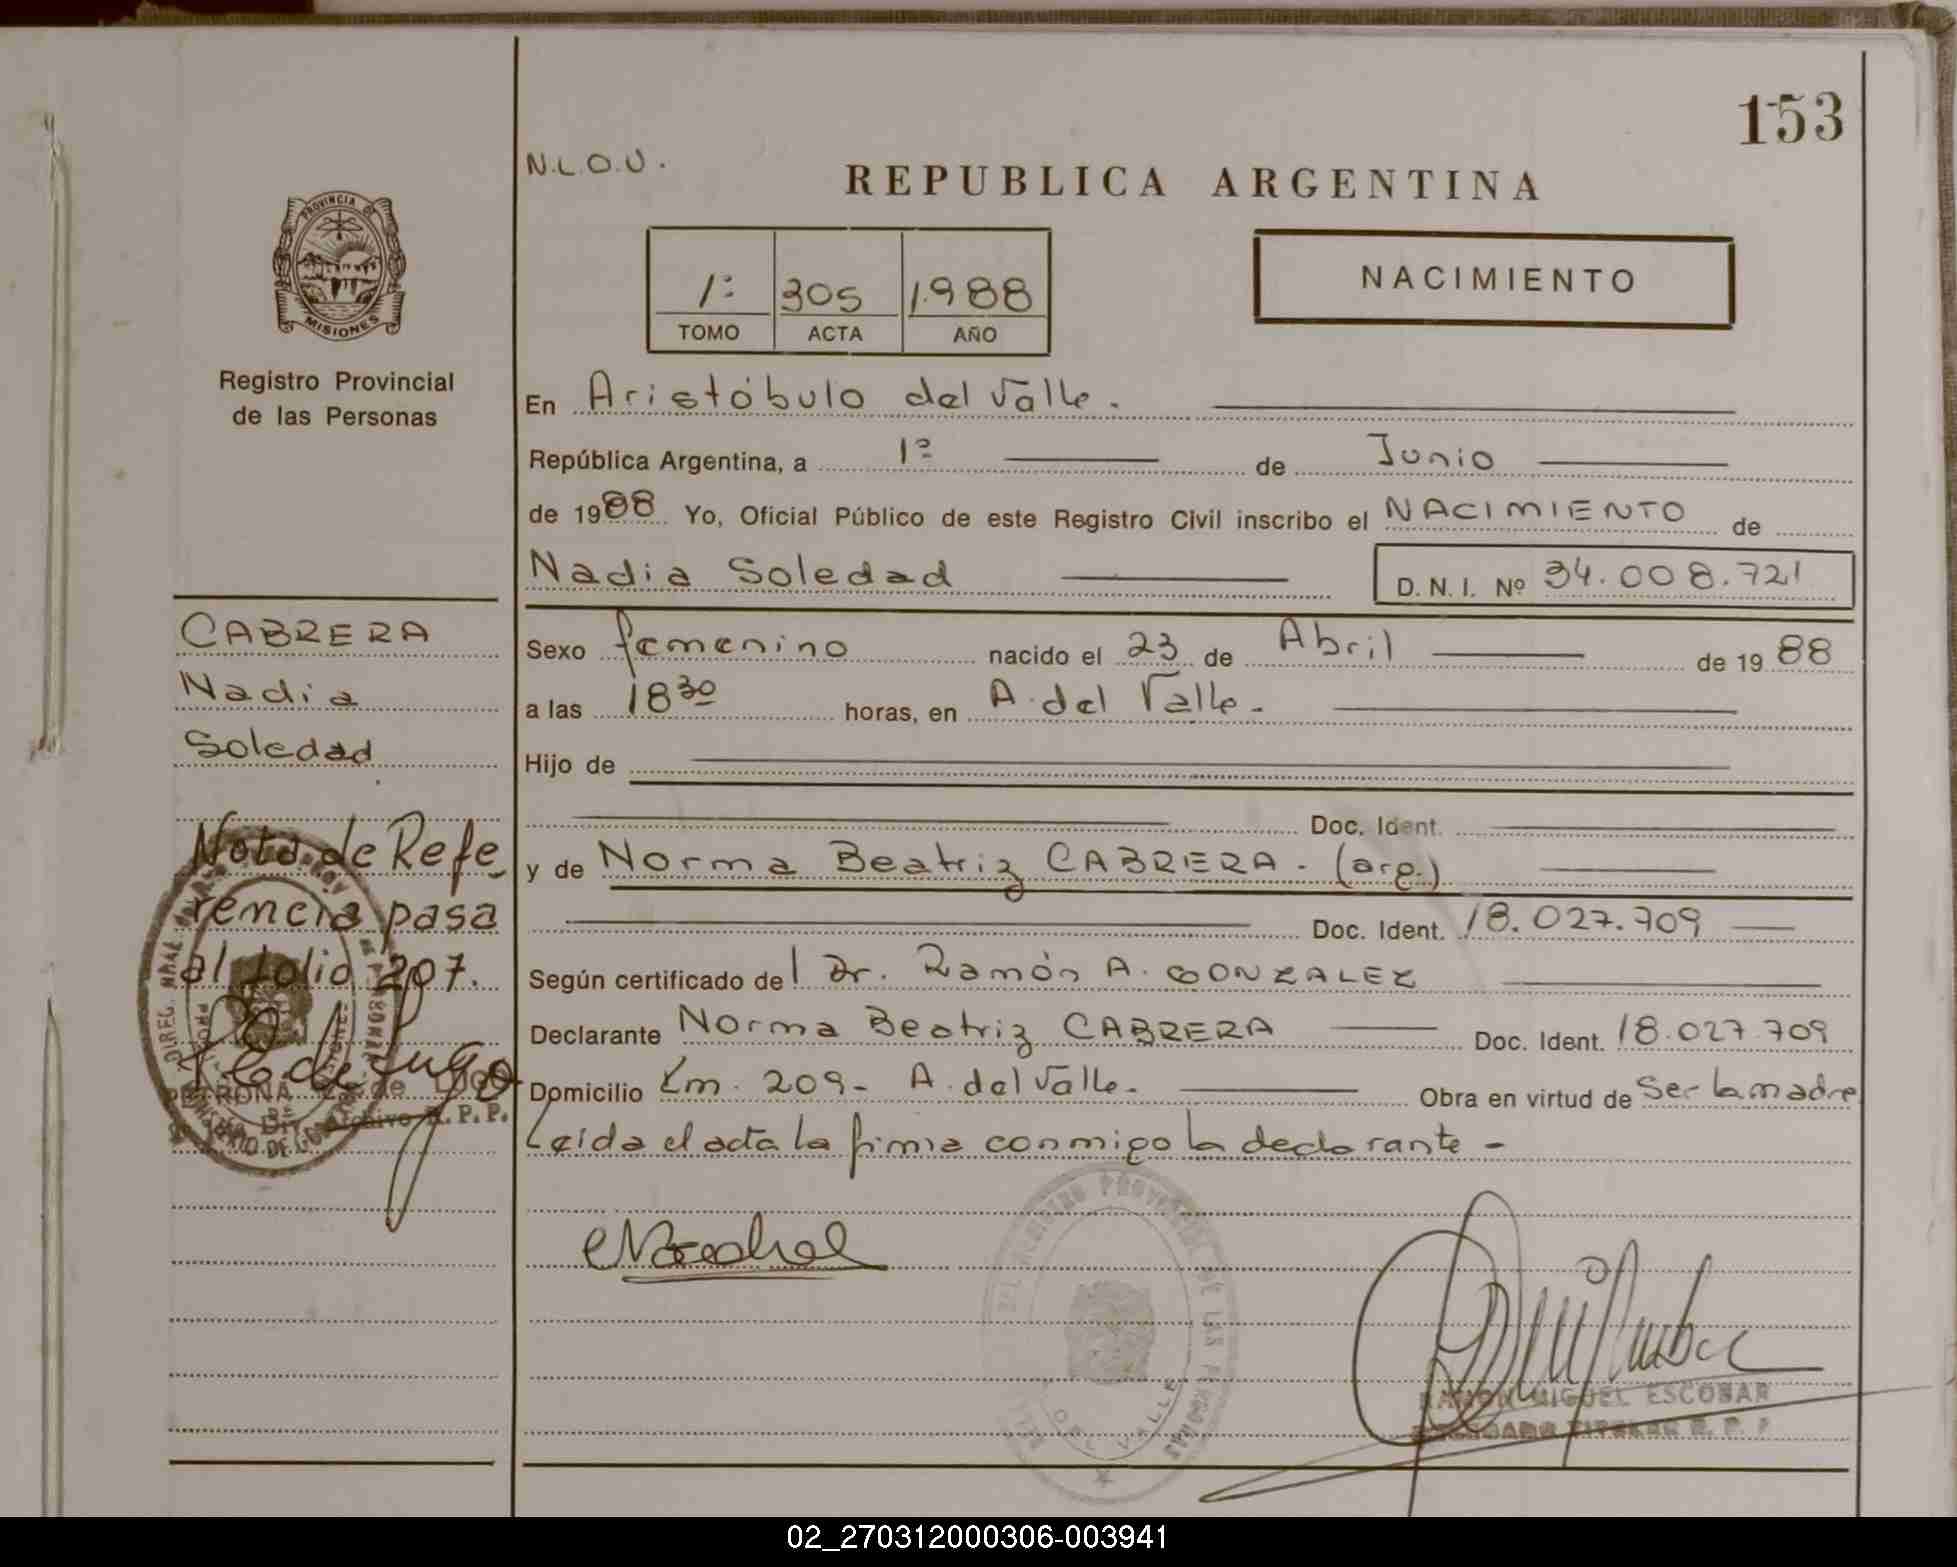 153
N.L.O.U.
REPUBLICA ARGENTINA
PROVINCIA DE
MISIONES
Registro Provincial
de las Personas
1º 305 1.988
TOMO ACTA AÑO
NACIMIENTO
En Aristóbulo del Valle.
República Argentina, a 1º de Junio
de 1988 Yo, Oficial Público de este Registro Civil inscribo el NACIMIENTO de
Nadia Soledad D. N. I. Nº 34.008.721
CABRERA
Nadia
Soledad
Sexo femenino nacido el 23 de Abril de 19 88
a las 18 30 horas, en A. del Valle.
Hijo de
Doc. Ident.
y de Norma Beatriz CABRERA. (arg.)
Doc. Ident. 18.027.709
Según certificado del Dr. Ramón A. GONZALEZ
Declarante Norma Beatriz CABRERA Doc. Ident. 18.027.709
Domicilio Km. 209- A. del Valle. Obra en virtud de Ser la madre
Leída el acta la firma conmigo la declarante -
Nota de Refe
rencia pasa
al folio 207.
PETRONA de LUGO
Archivo R. P. P.
DEL VALLE
RAMON MIGUEL ESCOBAR
DELEGADO TITULAR R. P. P.
02_270312000306-003941